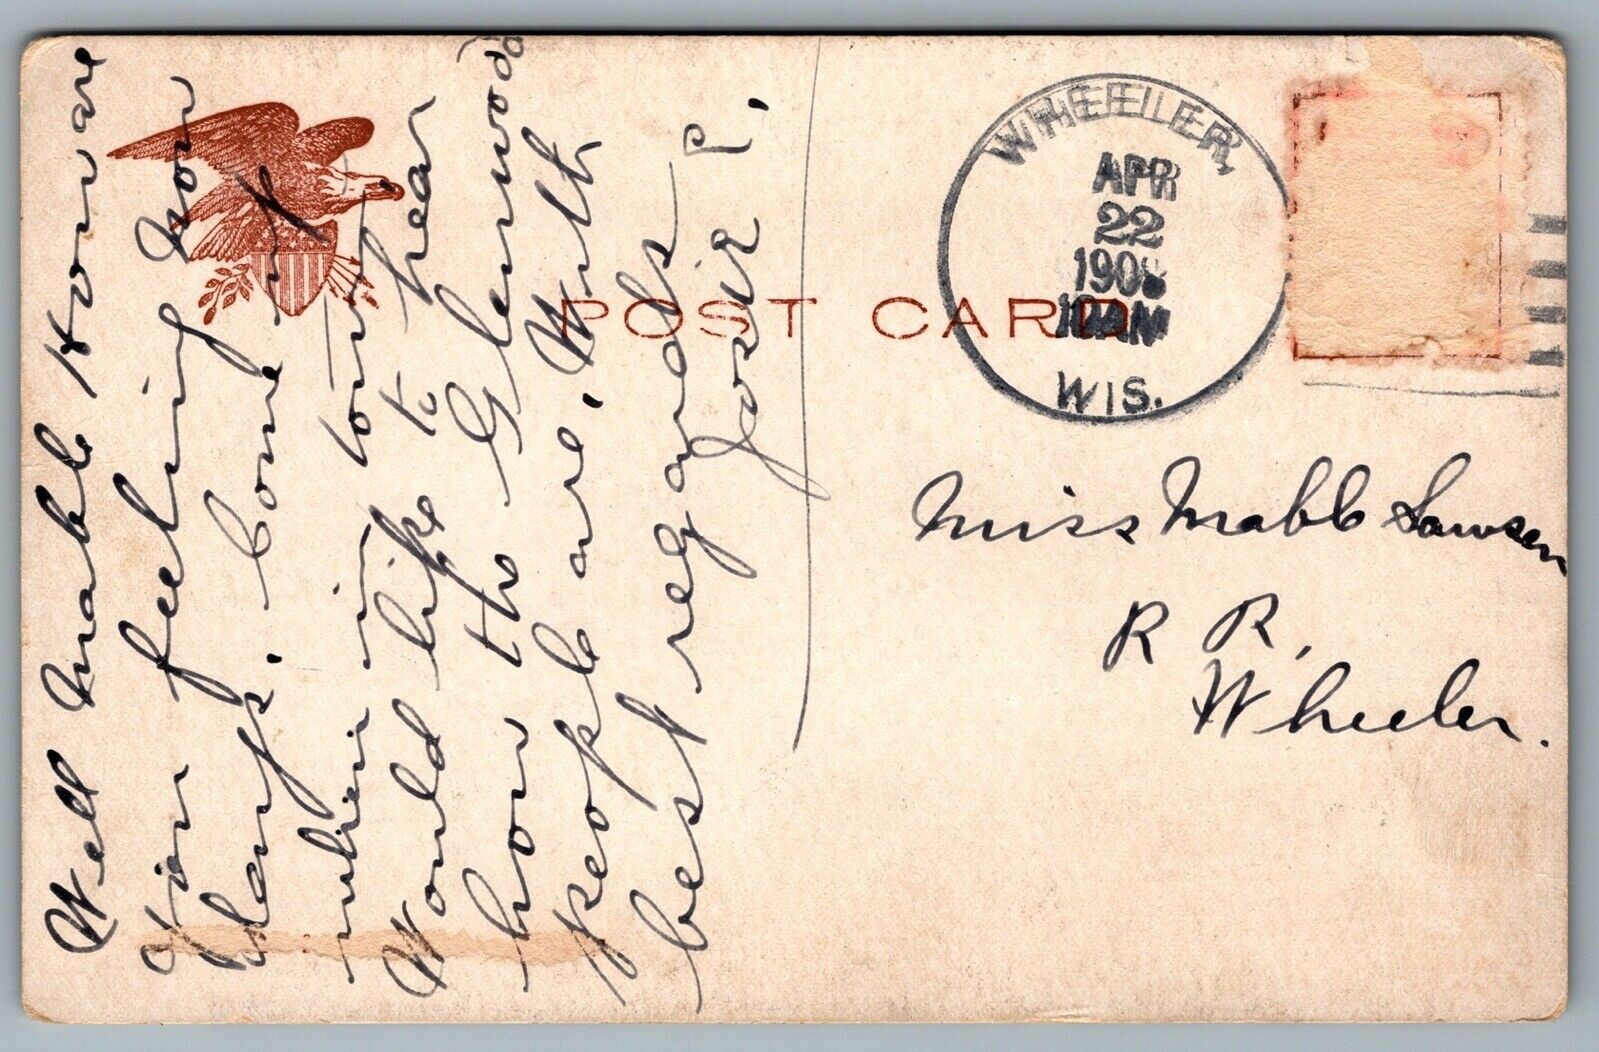 Well Mable How are
You feeling now
days. Come up
when in town
Would like to hear
how the Glenwood
people are. With
best regards
Josie P.
POST CARD
WHEELER,
APR
22
190
10AM
WIS.
Miss Mable Lawsen
R R,
Wheeler.